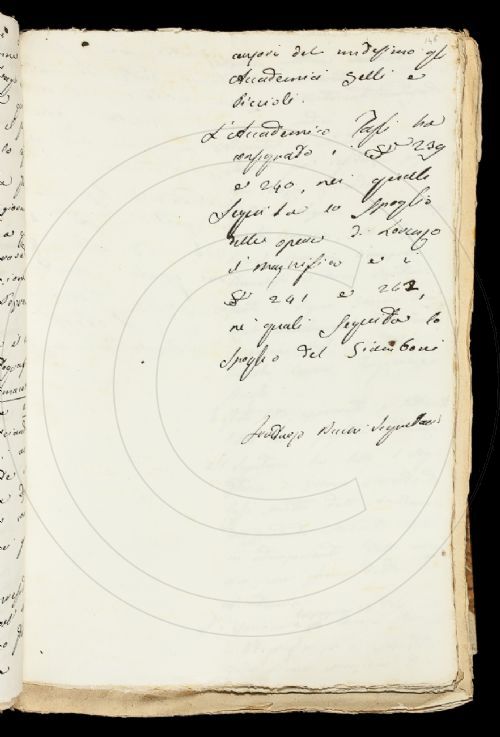 censori del medesimo gli
Accademici Zelli e
Riccioli.
L'Accademico Tassi ha
consegnato i 239
e 240, nei quali
seguita lo spoglio
delle opere di Lorenzo
il Magnifico e i
241 e 242,
nei quali seguita lo
spoglio del Giamboni
Bucci Segretario